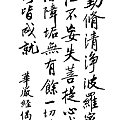 勤脩清淨波羅蜜
恒不忘失菩提心
障垢無有餘一切
行皆成就
華嚴經偈